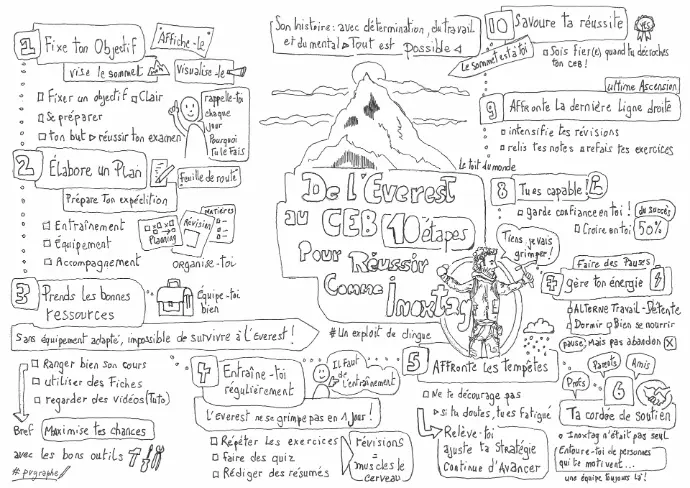 Son histoire: avec détermination, du travail
et du mental ▷ Tout est possible ◁
De l'Everest
au CEB 10 étapes
Pour Réussir
Comme Inoxtag
# Un exploit de dingue
Tiens, je vais
grimper!
Le toit du monde
1 Fixe ton Objectif
Affiche-le
Vise le sommet
Visualise-le
Fixer un objectif Clair
Se préparer
ton but ▷ réussir ton examen
rappelle-toi
chaque
jour
Pourquoi
Tu le Fais
2 Élabore un Plan
feuille de route
Prépare Ton expédition
Entraînement
Équipement
Accompagnement
Planning
Révision
Matières
ORGANISE-toi
3 Prends les bonnes
ressources
Équipe-toi
bien
Sans équipement adapté, impossible de survivre à L'Everest!
Ranger bien son cours
utiliser des Fiches
regarder des vidéos (Tuto)
Bref Maximise tes chances
avec les bons outils
#pvgraphe
4 Entraîne-toi
régulièrement
Il Faut
de
L'entraînement
L'Everest ne se grimpe pas en 1 Jour!
Répéter les exercices
Faire des quiz
Rédiger des résumés
révisions
=
muscles le
cerveau
5 Affronte Les tempêtes
Ne te décourage pas
▷ si tu doutes, tu es Fatigué
Relève-toi
ajuste ta Stratégie
Continue d'Avancer
6
Profs
Parents
Amis
Ta cordée de soutien
Inoxtag n'était pas seul
Entoure-toi de personnes
qui te motivent...
une équipe toujours là!
7 Faire des Pauses
gère ton énergie
ALTERNE Travail-Détente
Dormir Bien se nourrir
pause, Mais pas abandon
8 Tu es capable!
garde confiance en toi!
Croire en toi
du succès
50%
9 ultime Ascension
Affronte La dernière Ligne droite
intensifie tes révisions
relis tes notes & refais tes exercices
10 Savoure ta réussite
YES
Le sommet est à toi
Sois fier(e) quand tu décroches
ton CEB!